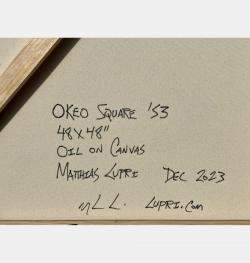 OKEO SQUARE '53
48X48"
OIL ON CANVAS
MATTHIAS LUPRI DEC 2023
MLL. LUPRI.COM